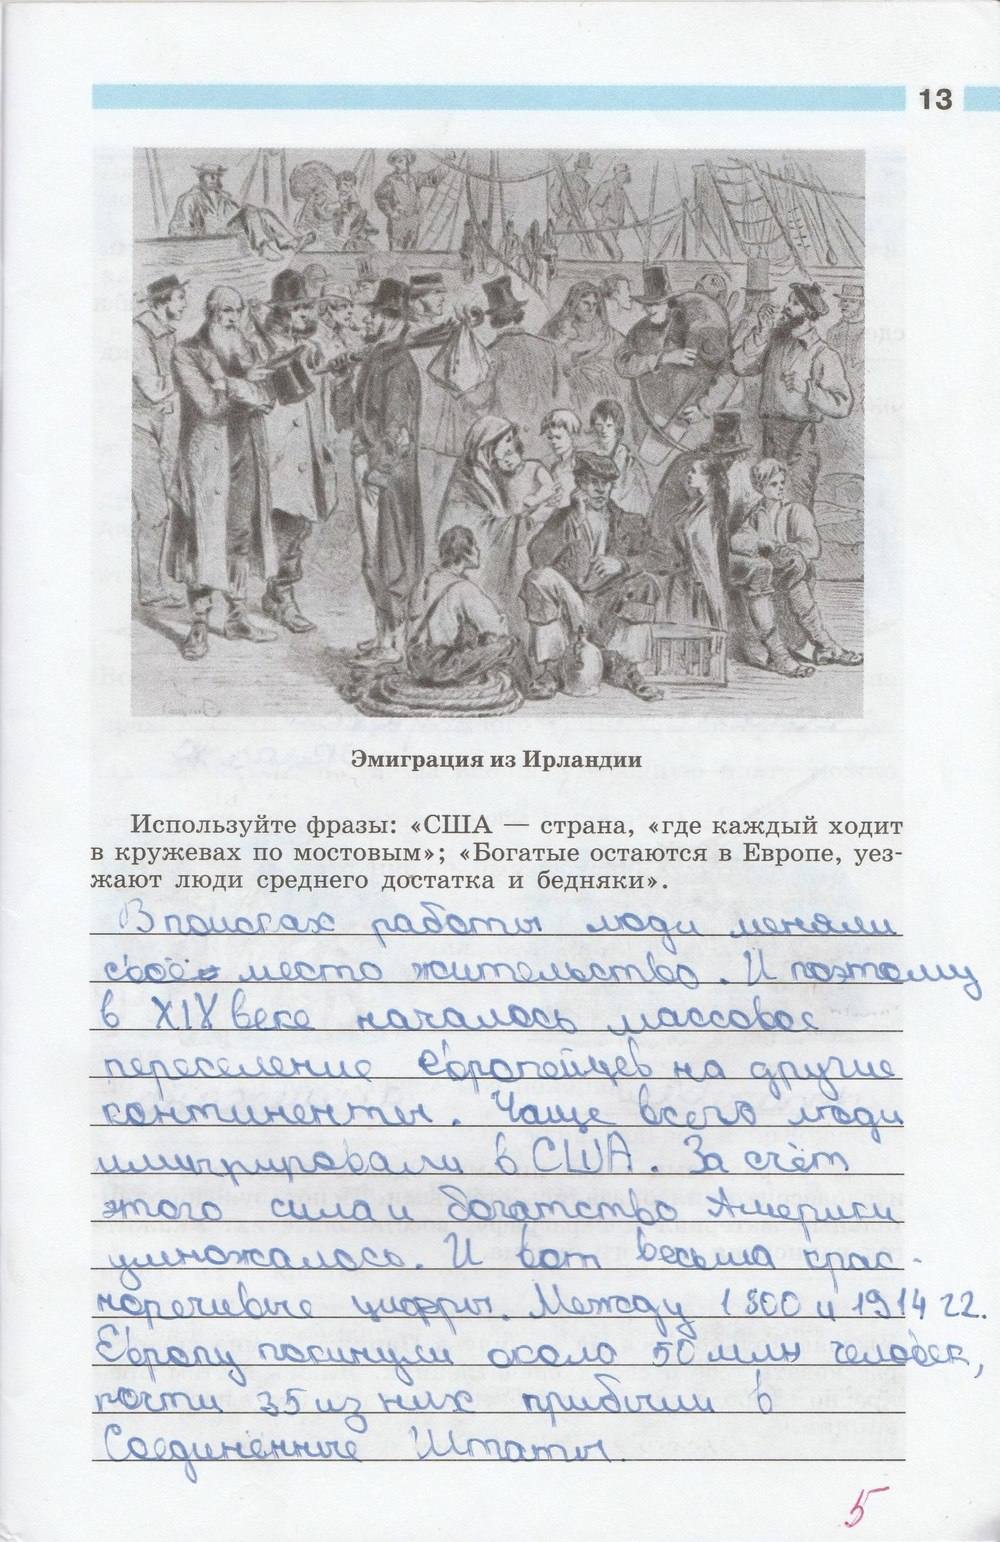 13
Эмиграция из Ирландии
Используйте фразы: «США — страна, «где каждый ходит
в кружевах по мостовым»; «Богатые остаются в Европе, уез-
жают люди среднего достатка и бедняки».
В поисках работы люди меняли
своё место жительство. И поэтому
в XIX веке началось массовое
переселение Европейцев на другие
континенты. Чаще всего люди
имигрировали в США. За счёт
этого сила и богатство Америки
умножалось. И вот весьма крас-
норечивые цифры. Между 1800 и 1914 гг.
Европу покинули около 50 млн человек,
почти 35 из них прибыли в
Соединённые Штаты.
5